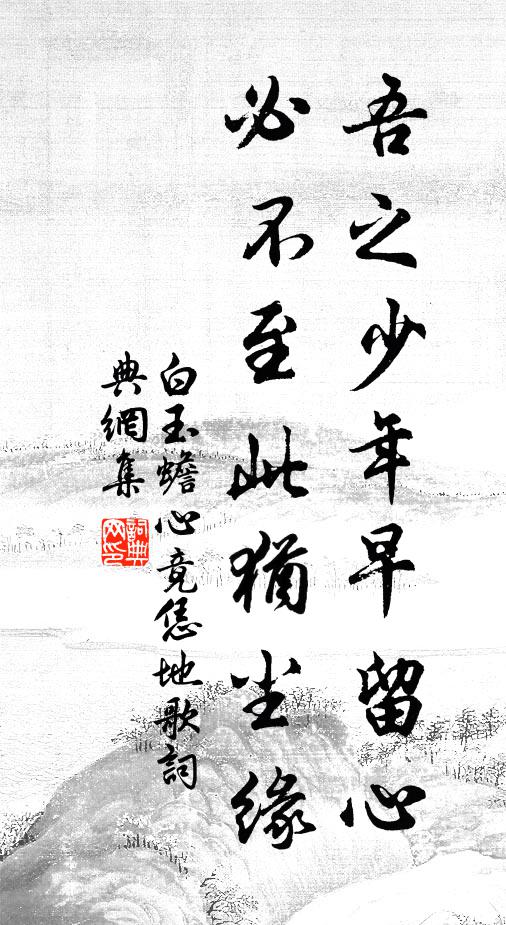 吾之少年早留心
必不至此猶尘緣
白玉蟾心竟恁地歌詞
典網集
詞典網印